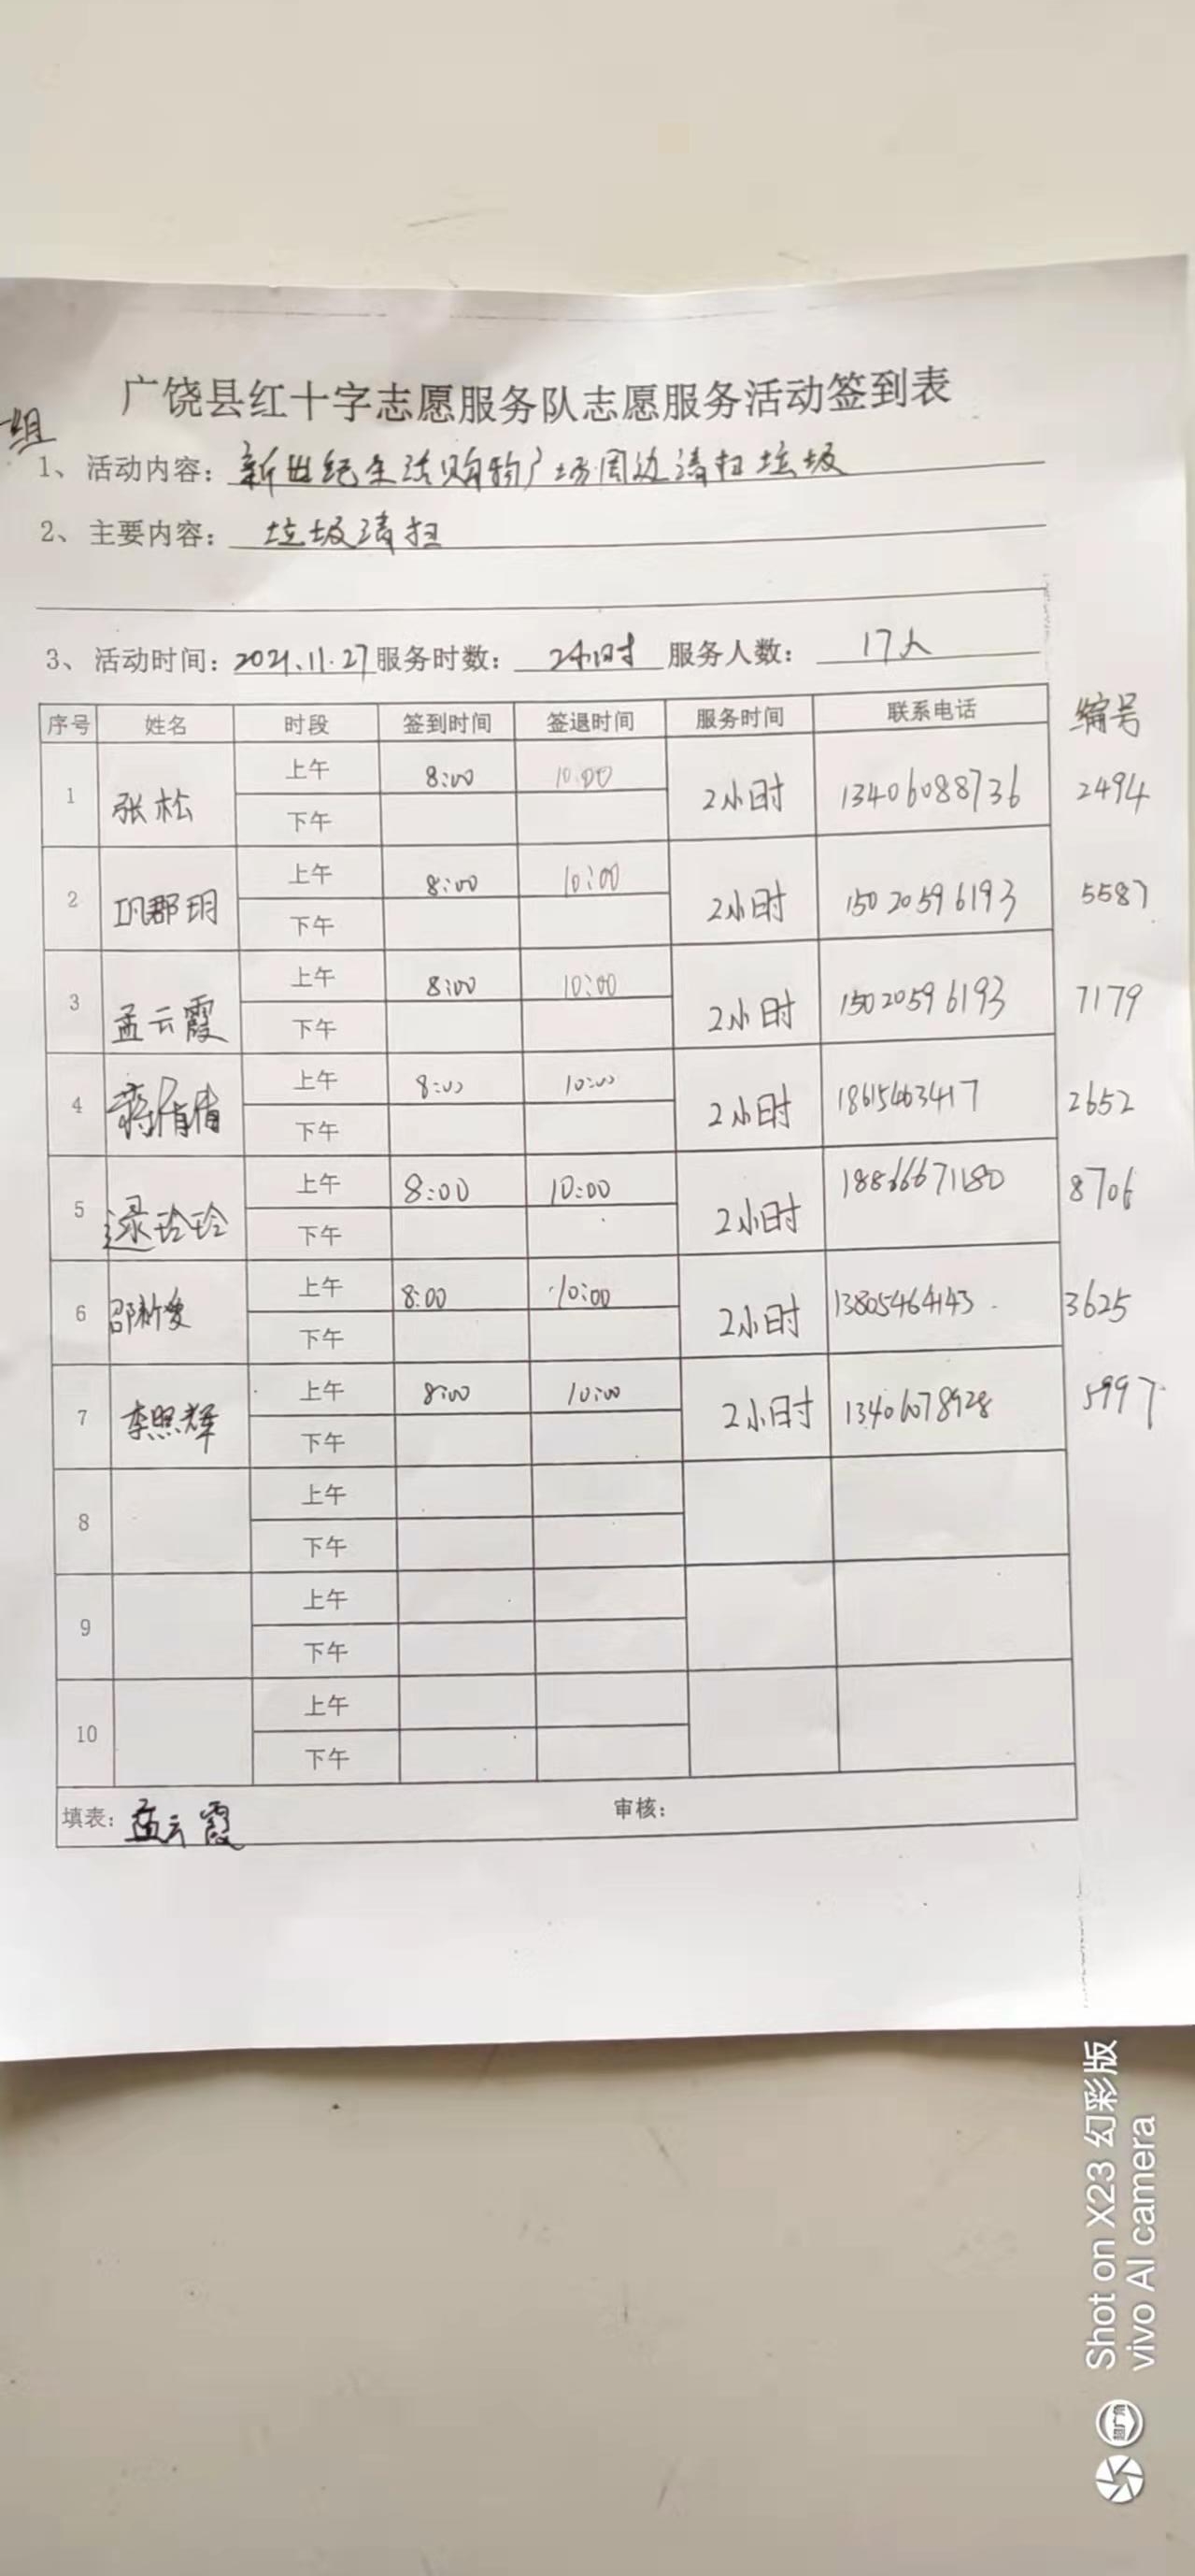 广饶县红十字志愿服务队志愿服务活动签到表
组
1、活动内容：新世纪生活购物广场周边清扫垃圾
2、主要内容：垃圾清扫
3、活动时间：2021.11.27 服务时数：2小时 服务人数：17人
序号 姓名 时段 签到时间 签退时间 服务时间 联系电话 编号
1 张松 上午 8:00 10:00 2小时 13406088736 2494
下午
2 巩郡玥 上午 8:00 10:00 2小时 15020596193 5587
下午
3 孟云霞 上午 8:00 10:00 2小时 15020596193 7179
下午
4 蒋倩倩 上午 8:00 10:00 2小时 18615463417 2652
下午
5 逯玲玲 上午 8:00 10:00 2小时 18866671180 8706
下午
6 邵新爱 上午 8:00 10:00 2小时 13805464143 3625
下午
7 李照辉 上午 8:00 10:00 2小时 13406078928 5997
下午
8 上午
下午
9 上午
下午
10 上午
下午
填表：孟云霞 审核：
Shot on X23 幻彩版
vivo AI camera
超广角